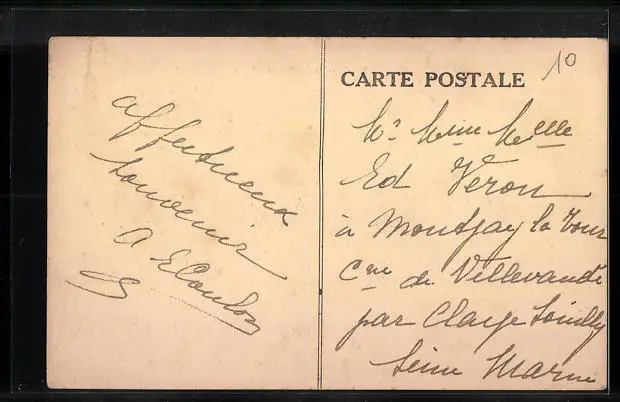 affectueux
souvenir
A
CARTE POSTALE
10
Mr Mme Melle
Ed Véron
à Montjay la Tour
Cne de Villevaudé
par Claye Souilly
Seine Marne